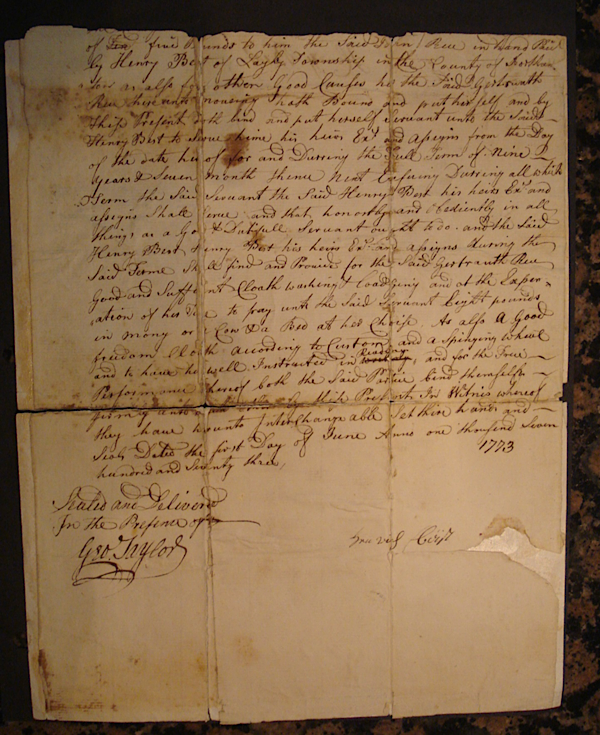 of five Pounds to him the Said Rue in hand Paid
by Henry Best of Township in the County of
ton as also for other Good Causes he the Said Gertrauth
Rue hath Bound and put herself and by
these Present doth bind and put herself Servant unto the Said
Henry Best to Serve hime his heirs Exr and assigns from the Day
of the date hereof for and Durring the full Term of Nine
Years & Seven Month thence Next Ensuing Durring all which
Term the Said Servant the Said Henry Best his heirs Exr and
assigns Shall Serve and that honostly and obediently in all
things as a Good & Dutyfull Servant ought to do. and the Said
Henry Best Henry Best his heirs Exr and assigns during the
Said Terme Shall find and Provide for the Said Gertrauth Rue
Good and Suffient Cloath washing Loadging and at the Exper=
ration of her time to pay unto the Said Servant Eight pounds
in mony or a Cow & a Bed at her Choise. As also A Good
freedom Cloth according to Custom and a Spenging wheel
and to have her well Instructed in Reading and for the True
Performance hereof both the Said Partie bind themselfe
firmly unto by these Presents In Witnis whereof
they have hereunto Interchangable Set their hands and
Seals Dated the first Day of June Annoo one thousend Seven
hundred and Seventy three, 1773
Sealed and Deliverd
In the Presence of
Geo: Taylor